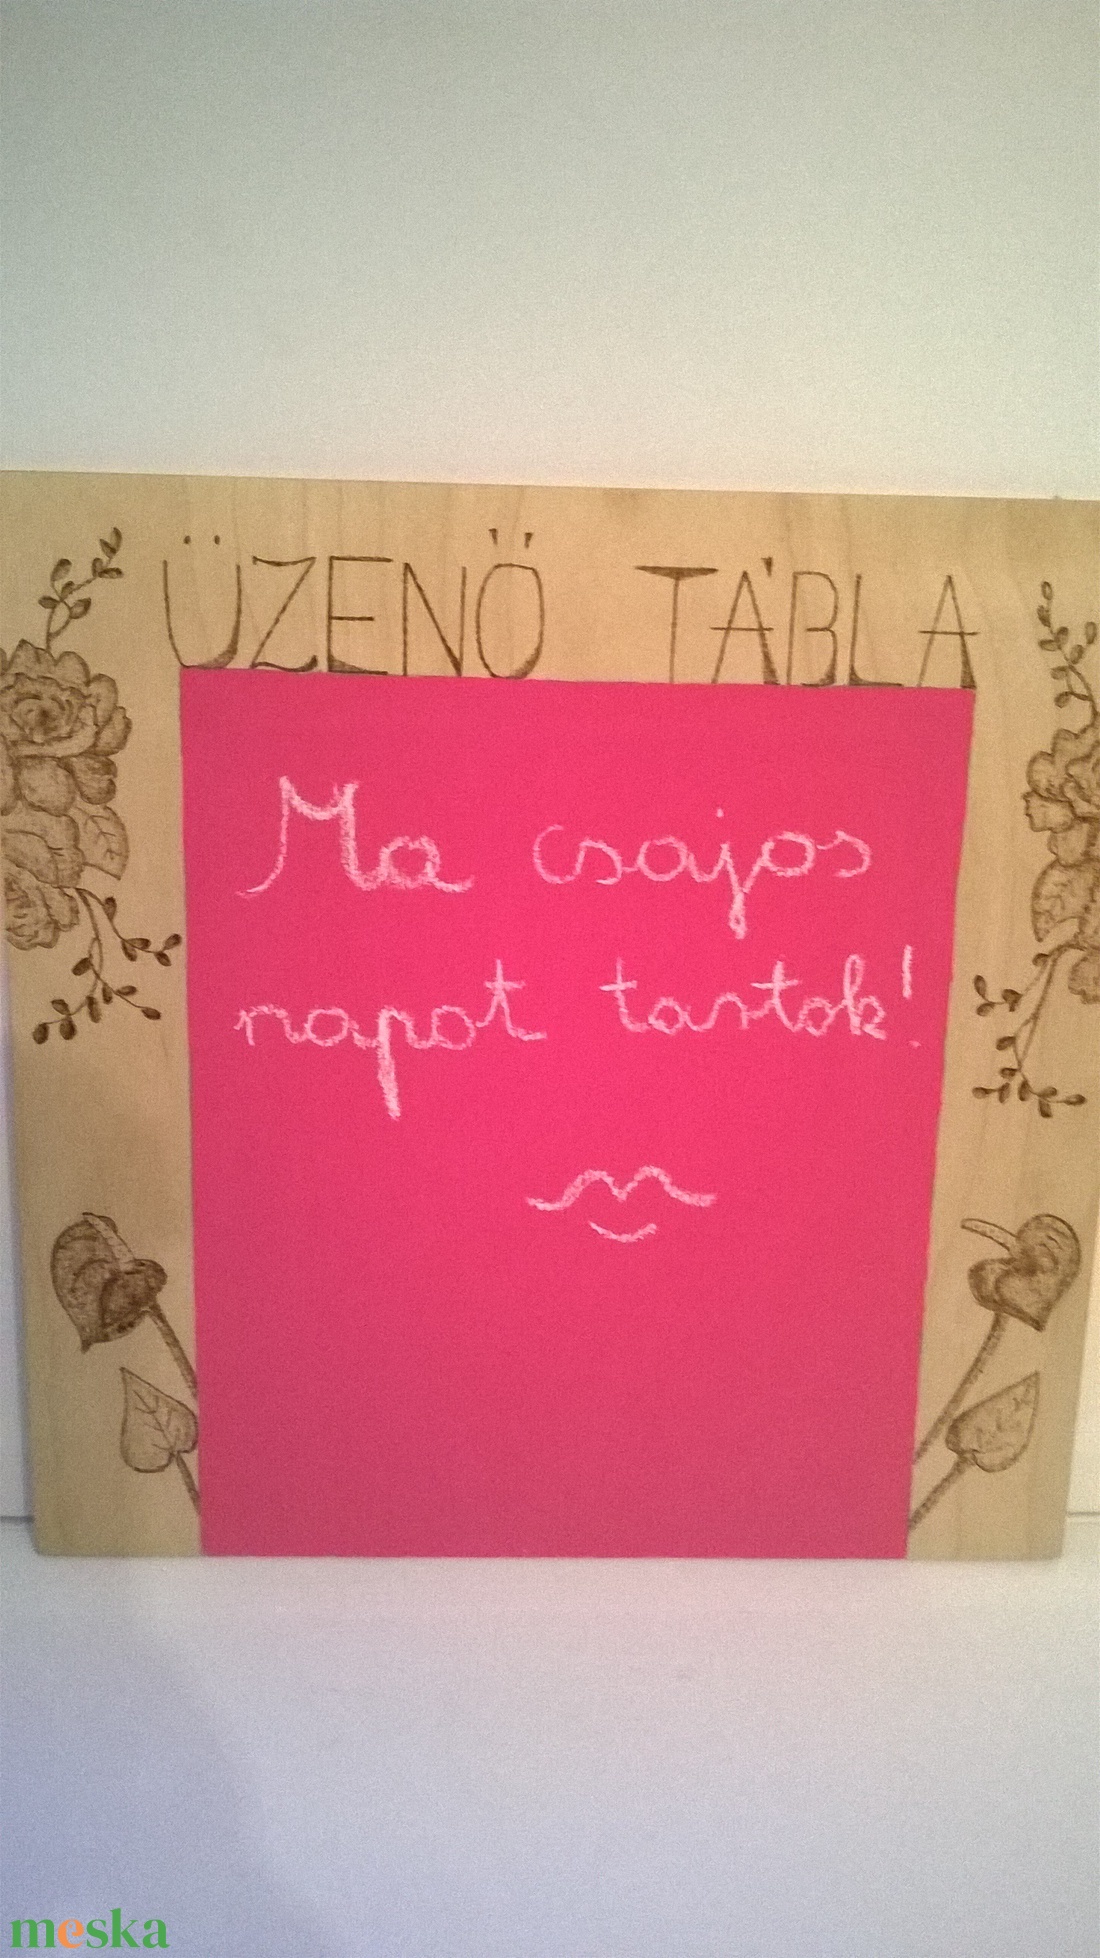 ÜZENŐ TÁBLA
Ma csajos
napot tartok!
meska